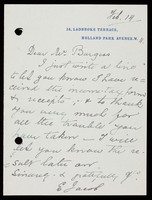 Feb. 19
14, LADBROKE TERRACE,
HOLLAND PARK AVENUE, W.
Dear Mr Burgess
I just write a line
to let you know I have re-
ceived the money &
& receipts; & to thank
you very much for
all the trouble you
have taken – I will
let you know the re-
sult later on
& gratefully yrs
E Jacob